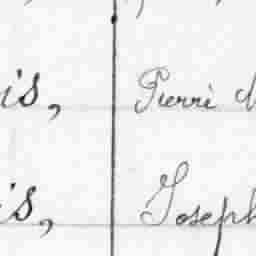 is, Pierre
is, Joseph